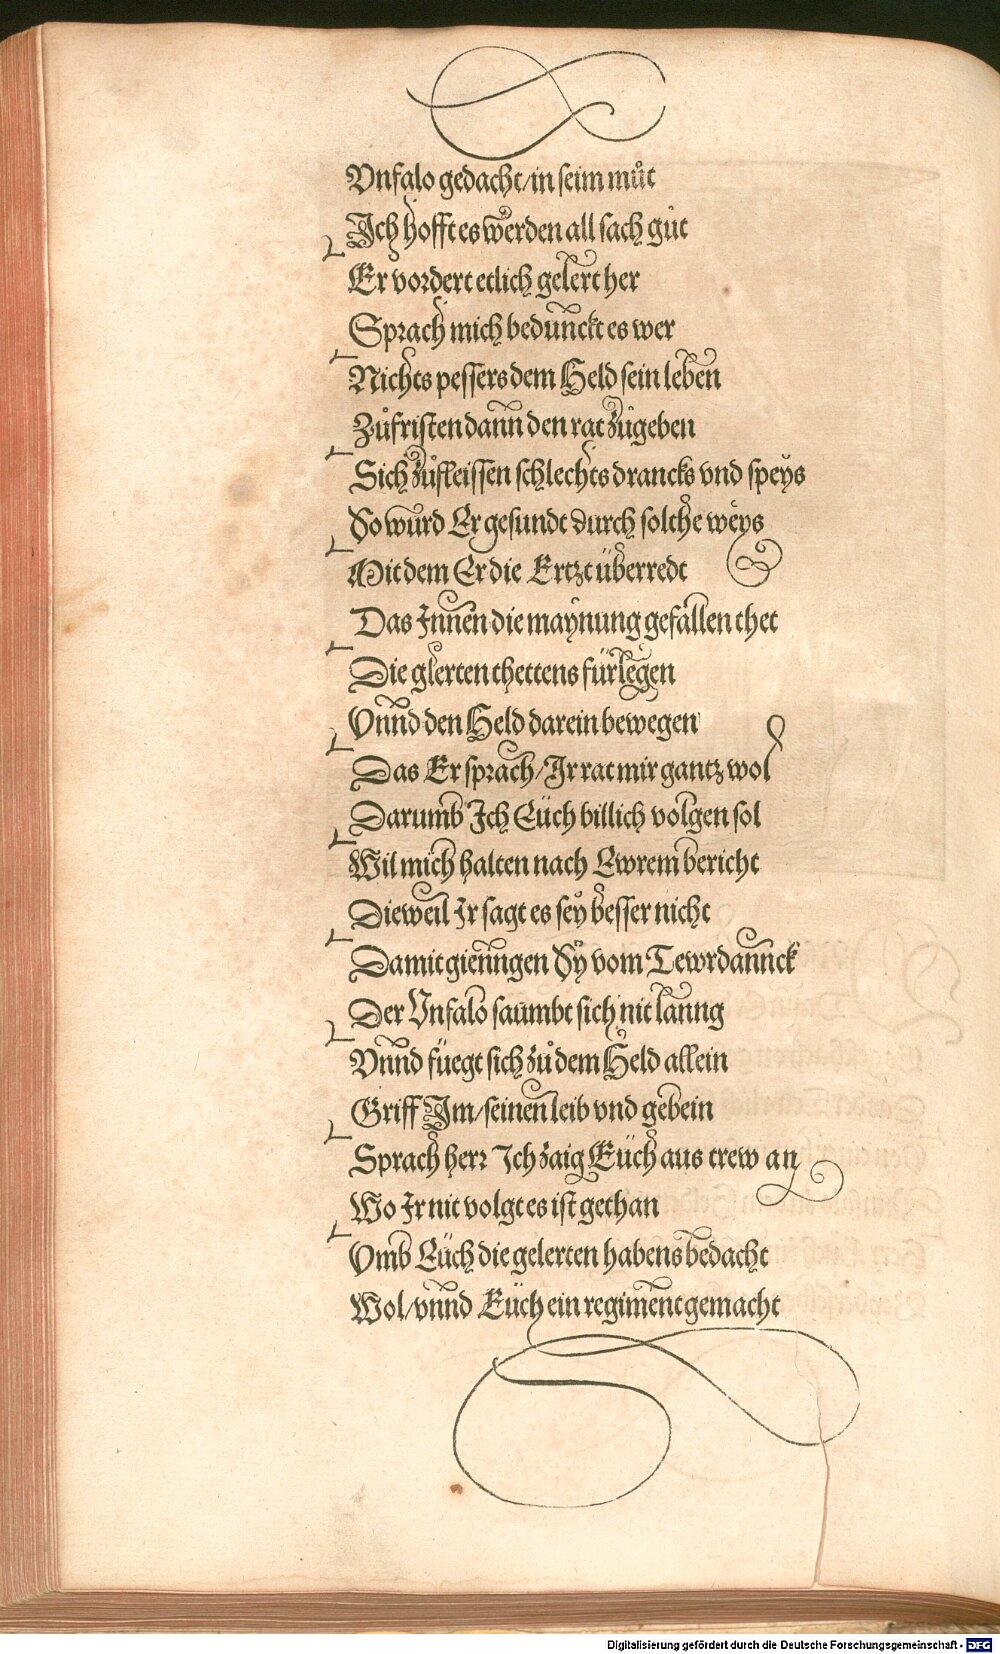 Vnfalo gedacht/in seim můt
Ich hofft es werden all sach gůt
Er vordert etlich gelert her
Sprach mich beduñckt es wer
Nichts pessers dem Held sein leben
Zůfristen dann den rat zůgeben
Sich zůfleissen schlechts drancks vnd speÿs
So wurd Er gesundt durch solche weÿs
Mit dem Er die Ertzt überredt
Das Innen die maÿnung gefallen thet
Die glerten thettens fürlegen
Vnnd den Held darein bewegen
Das Er sprach/Ir rat mir gantz wol
Darumb Ich Eüch billich volgen sol
Wil mich halten nach Ewrem bericht
Dieweil Ir sagt es seÿ besser nicht
Damit gienngen Sÿ vom Tewrdannck
Der Vnfalo saumbt sich nit lanng
Vnnd füegt sich zů dem Held allein
Griff Im/seinen leib vnd gebein
Sprach herr Ich zaig Eüch aus trew an
Wo Ir nit volgt es ist gethan
Vmb Eüch die gelerten habens bedacht
Wol/vnnd Eüch ein regiment gemacht
Digitalisierung gefördert durch die Deutsche Forschungsgemeinschaft - DFG